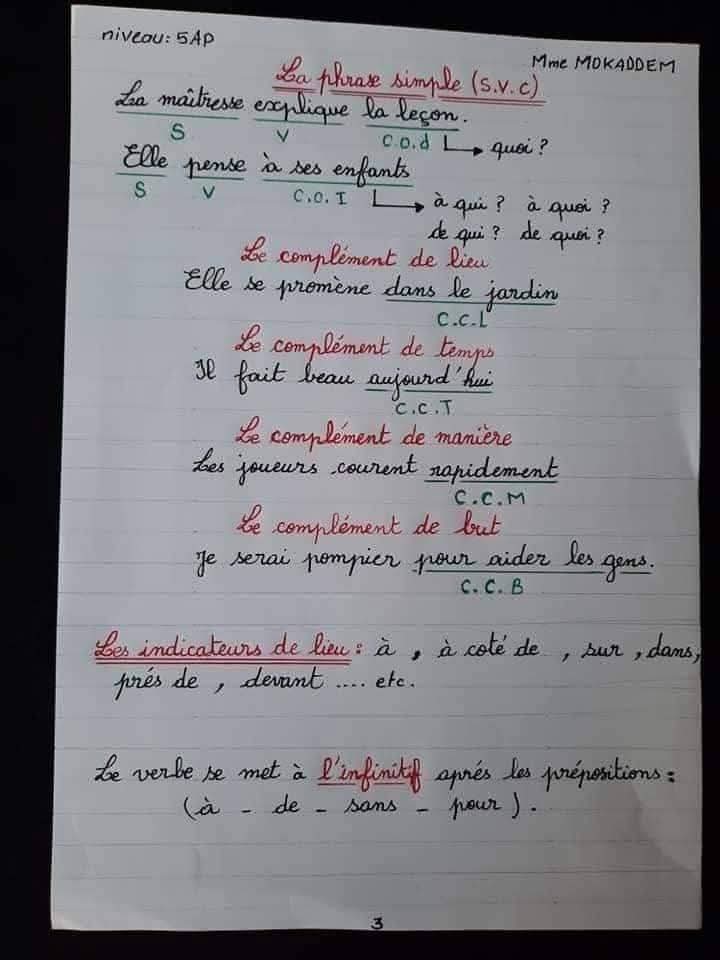 niveau: 5AP
Mme MOKADDEM
La phrase simple (S.V.C)
La maîtresse explique la leçon.
S V C.O.d → quoi ?
Elle pense à ses enfants
S V C.O.I → à qui ? à quoi ?
de qui ? de quoi ?
Le complément de lieu
Elle se promène dans le jardin
C.C.L
Le complément de temps
Il fait beau aujourd'hui
C.C.T
Le complément de manière
Les joueurs courent rapidement
C.C.M
Le complément de but
Je serai pompier pour aider les gens.
C.C.B
Les indicateurs de lieu : à , à coté de , sur , dans,
prés de , devant .... etc.
Le verbe se met à l'infinitif aprés les prépositions :
(à - de - sans - pour ).
3